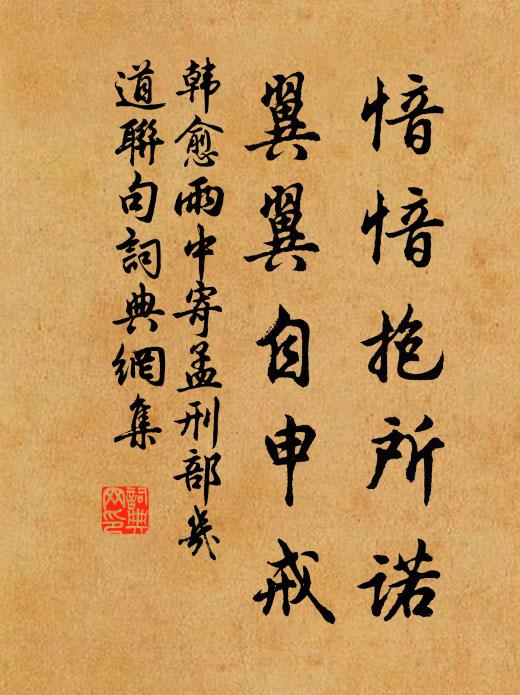 愔愔抱所诺
翼翼自申戒
韩愈雨中寄孟刑部幾
道聯句詞典網集
詞典
网印